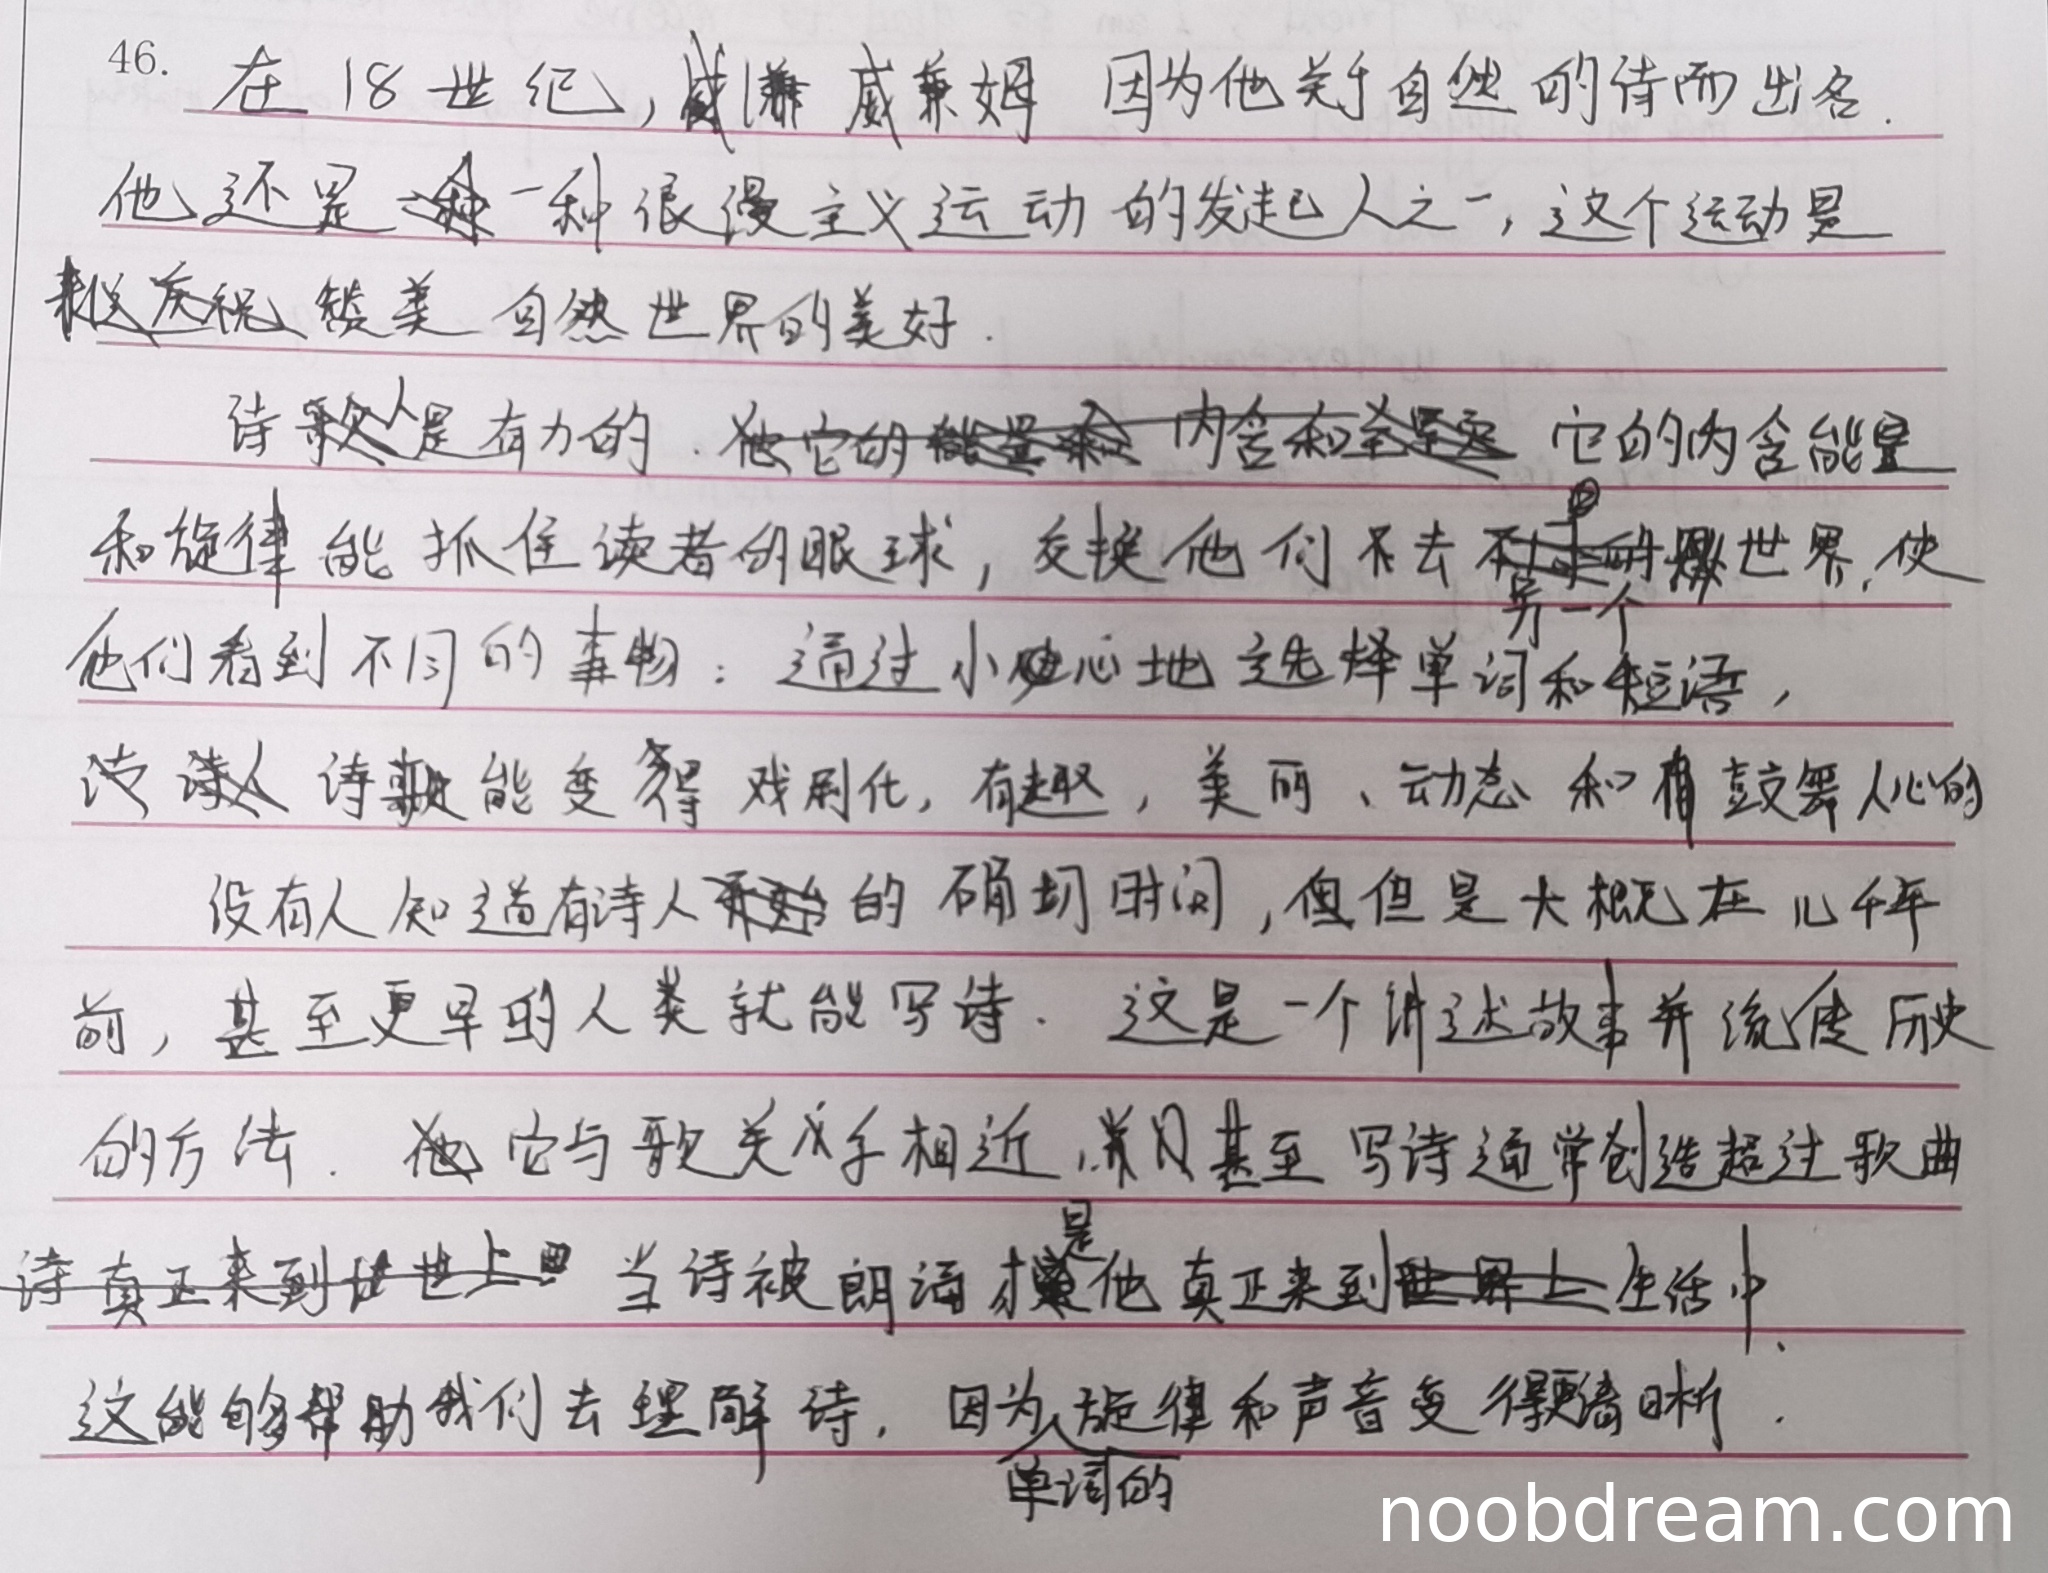 46. 在18世纪, 威兼姆 因为他关于自然的诗而出名.
他还是一种很漫主义运动的发起人之一, 这个运动是
赞美自然世界的美好.
诗歌是有力的. 它的内含能量
和旋律能抓住读者的眼球, 交换他们不去另一个世界, 使
他们看到不同的事物: 通过小心地选择单词和短语,
诗歌能变得戏剧化, 有趣, 美丽、动态和有鼓舞人心的
没有人知道有诗人的确切时间, 但是大概在几千年
前, 甚至更早的人类就能写诗. 这是一个讲述故事并流传历史
的方法. 它与歌关乎相近, 甚至写诗通常创造超过歌曲
当诗被朗诵才是他真正来到生活中.
这能够帮助我们去理解诗. 因为单词的旋律和声音变得更清晰.
noobdream.com